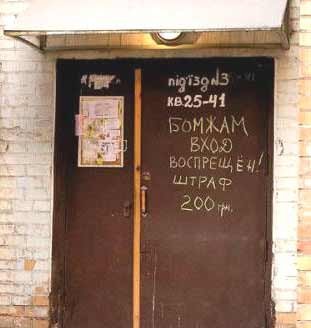 під'їзд №3
кв. 25-41
БОМЖАМ
ВХОД
ВОСПРЕЩЁН!
ШТРАФ
200 грн.